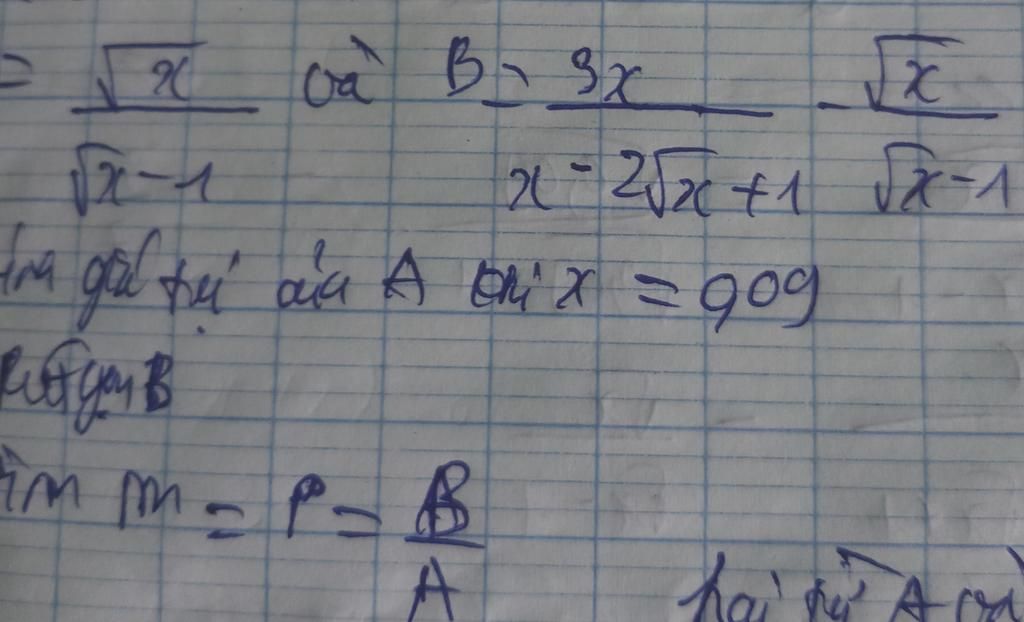 = √x / (√x - 1) và B = 3x / (x - 2√x + 1) - √x / (√x - 1)
giá trị của A khi x = 909
Rút gọn B
m = P = B / A
A và